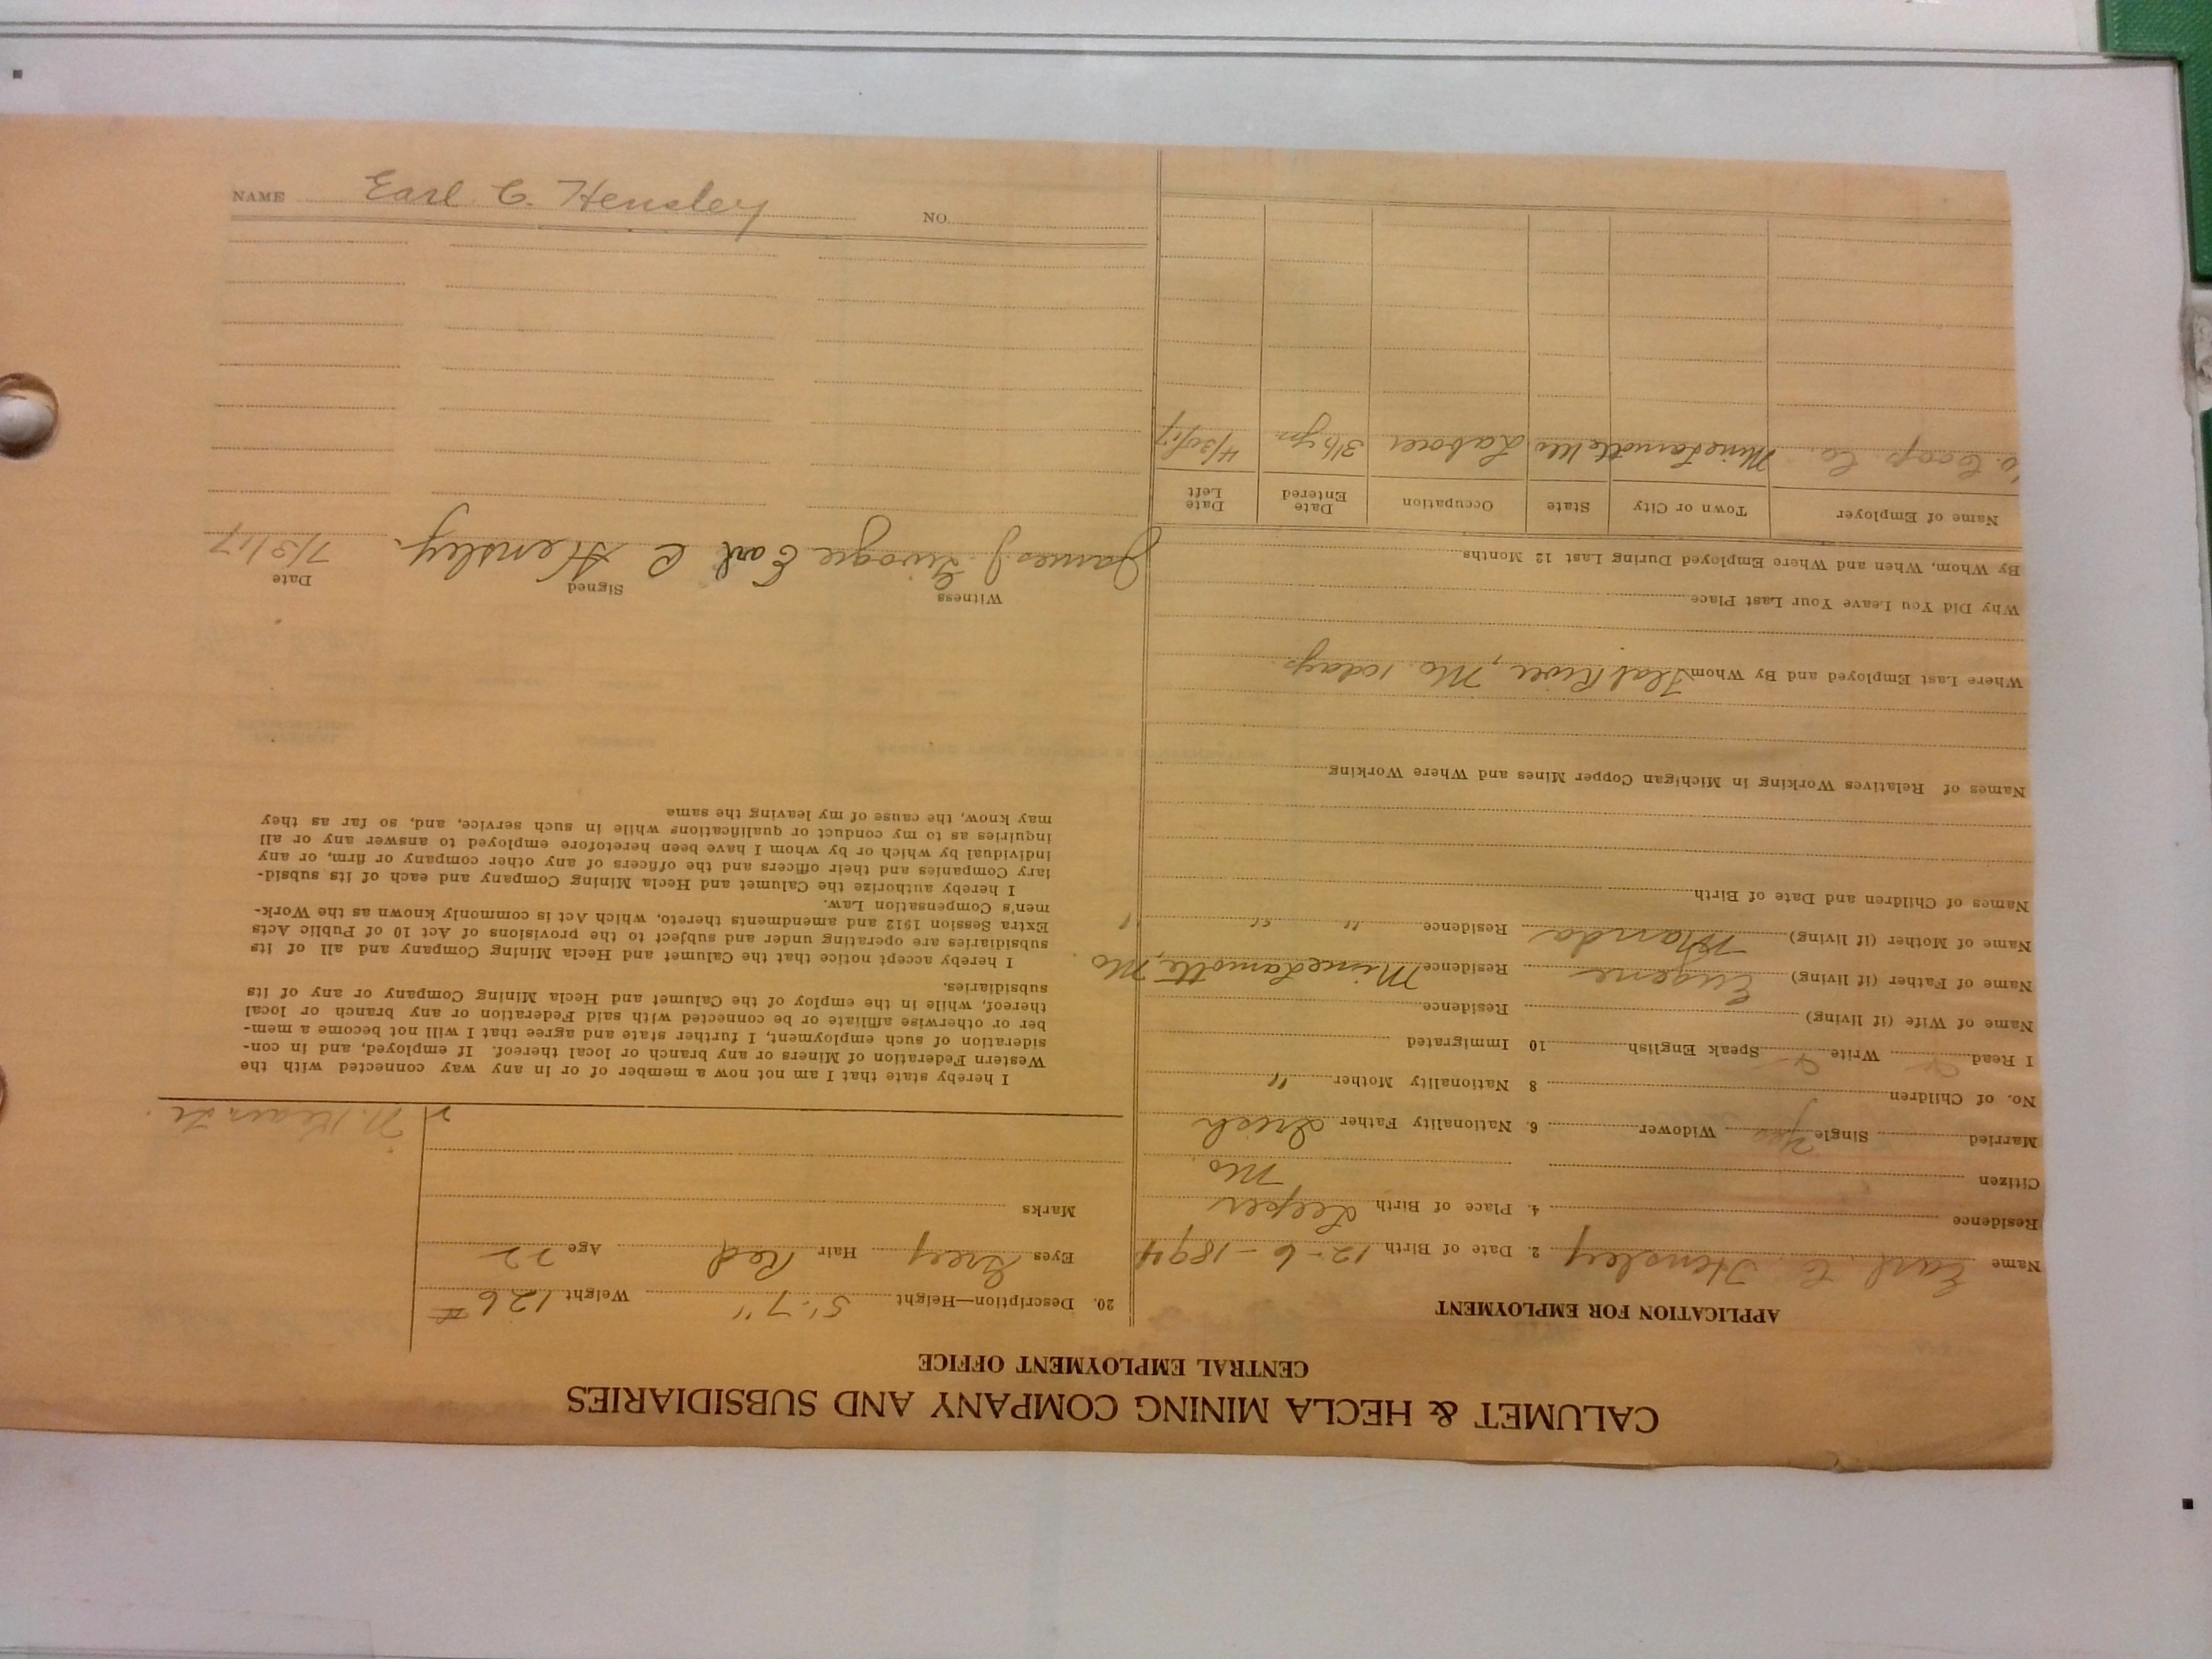 CALUMET & HECLA MINING COMPANY AND SUBSIDIARIES
CENTRAL EMPLOYMENT OFFICE
APPLICATION FOR EMPLOYMENT
Name Earl C. Hensley 2. Date of Birth 12-6-1894
Residence 4. Place of Birth Leeper
Citizen Mo.
Married Single Yes Widower 6. Nationality Father Irish
No. of Children 8 Nationality Mother "
I Read Write Speak English 10 Immigrated
Name of Wife (if living) Residence
Name of Father (if living) Eugene Residence Mine Lamotte, Mo.
Name of Mother (if living) Manda Residence " " "
Names of Children and Date of Birth
Names of Relatives Working in Michigan Copper Mines and Where Working
Where Last Employed and By Whom Flat River, Mo. 10 days
Why Did You Leave Your Last Place
By Whom, When and Where Employed During Last 12 Months
Name of Employer Town or City State Occupation Date Entered Date Left
Coop. Co. Mine Lamotte Mo Laborer 3½ yrs. 4/30/17
20. Description—Height 5'-7" Weight 126#
Eyes Grey Hair Red Age 22
Marks
I hereby state that I am not now a member of or in any way connected with the
Western Federation of Miners or any branch or local thereof. If employed, and in con-
sideration of such employment, I further state and agree that I will not become a mem-
ber or otherwise affiliate or be connected with said Federation or any branch or local
thereof, while in the employ of the Calumet and Hecla Mining Company or any of its
subsidiaries.
I hereby accept notice that the Calumet and Hecla Mining Company and all of its
subsidiaries are operating under and subject to the provisions of Act 10 of Public Acts
Extra Session 1912 and amendments thereto, which Act is commonly known as the Work-
men's Compensation Law.
I hereby authorize the Calumet and Hecla Mining Company and each of its subsid-
iary Companies and their officers and the officers of any other company or firm, or any
individual by which or by whom I have been heretofore employed to answer any or all
inquiries as to my conduct or qualifications while in such service, and, so far as they
may know, the cause of my leaving the same
Witness Signed Date
James J. Earl C Hensley. 7/3/17
NAME Earl C. Hensley NO.